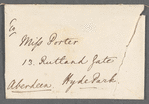 To
Miss Porter
13. Rutland Gate
Hyde Park.
Aberdeen